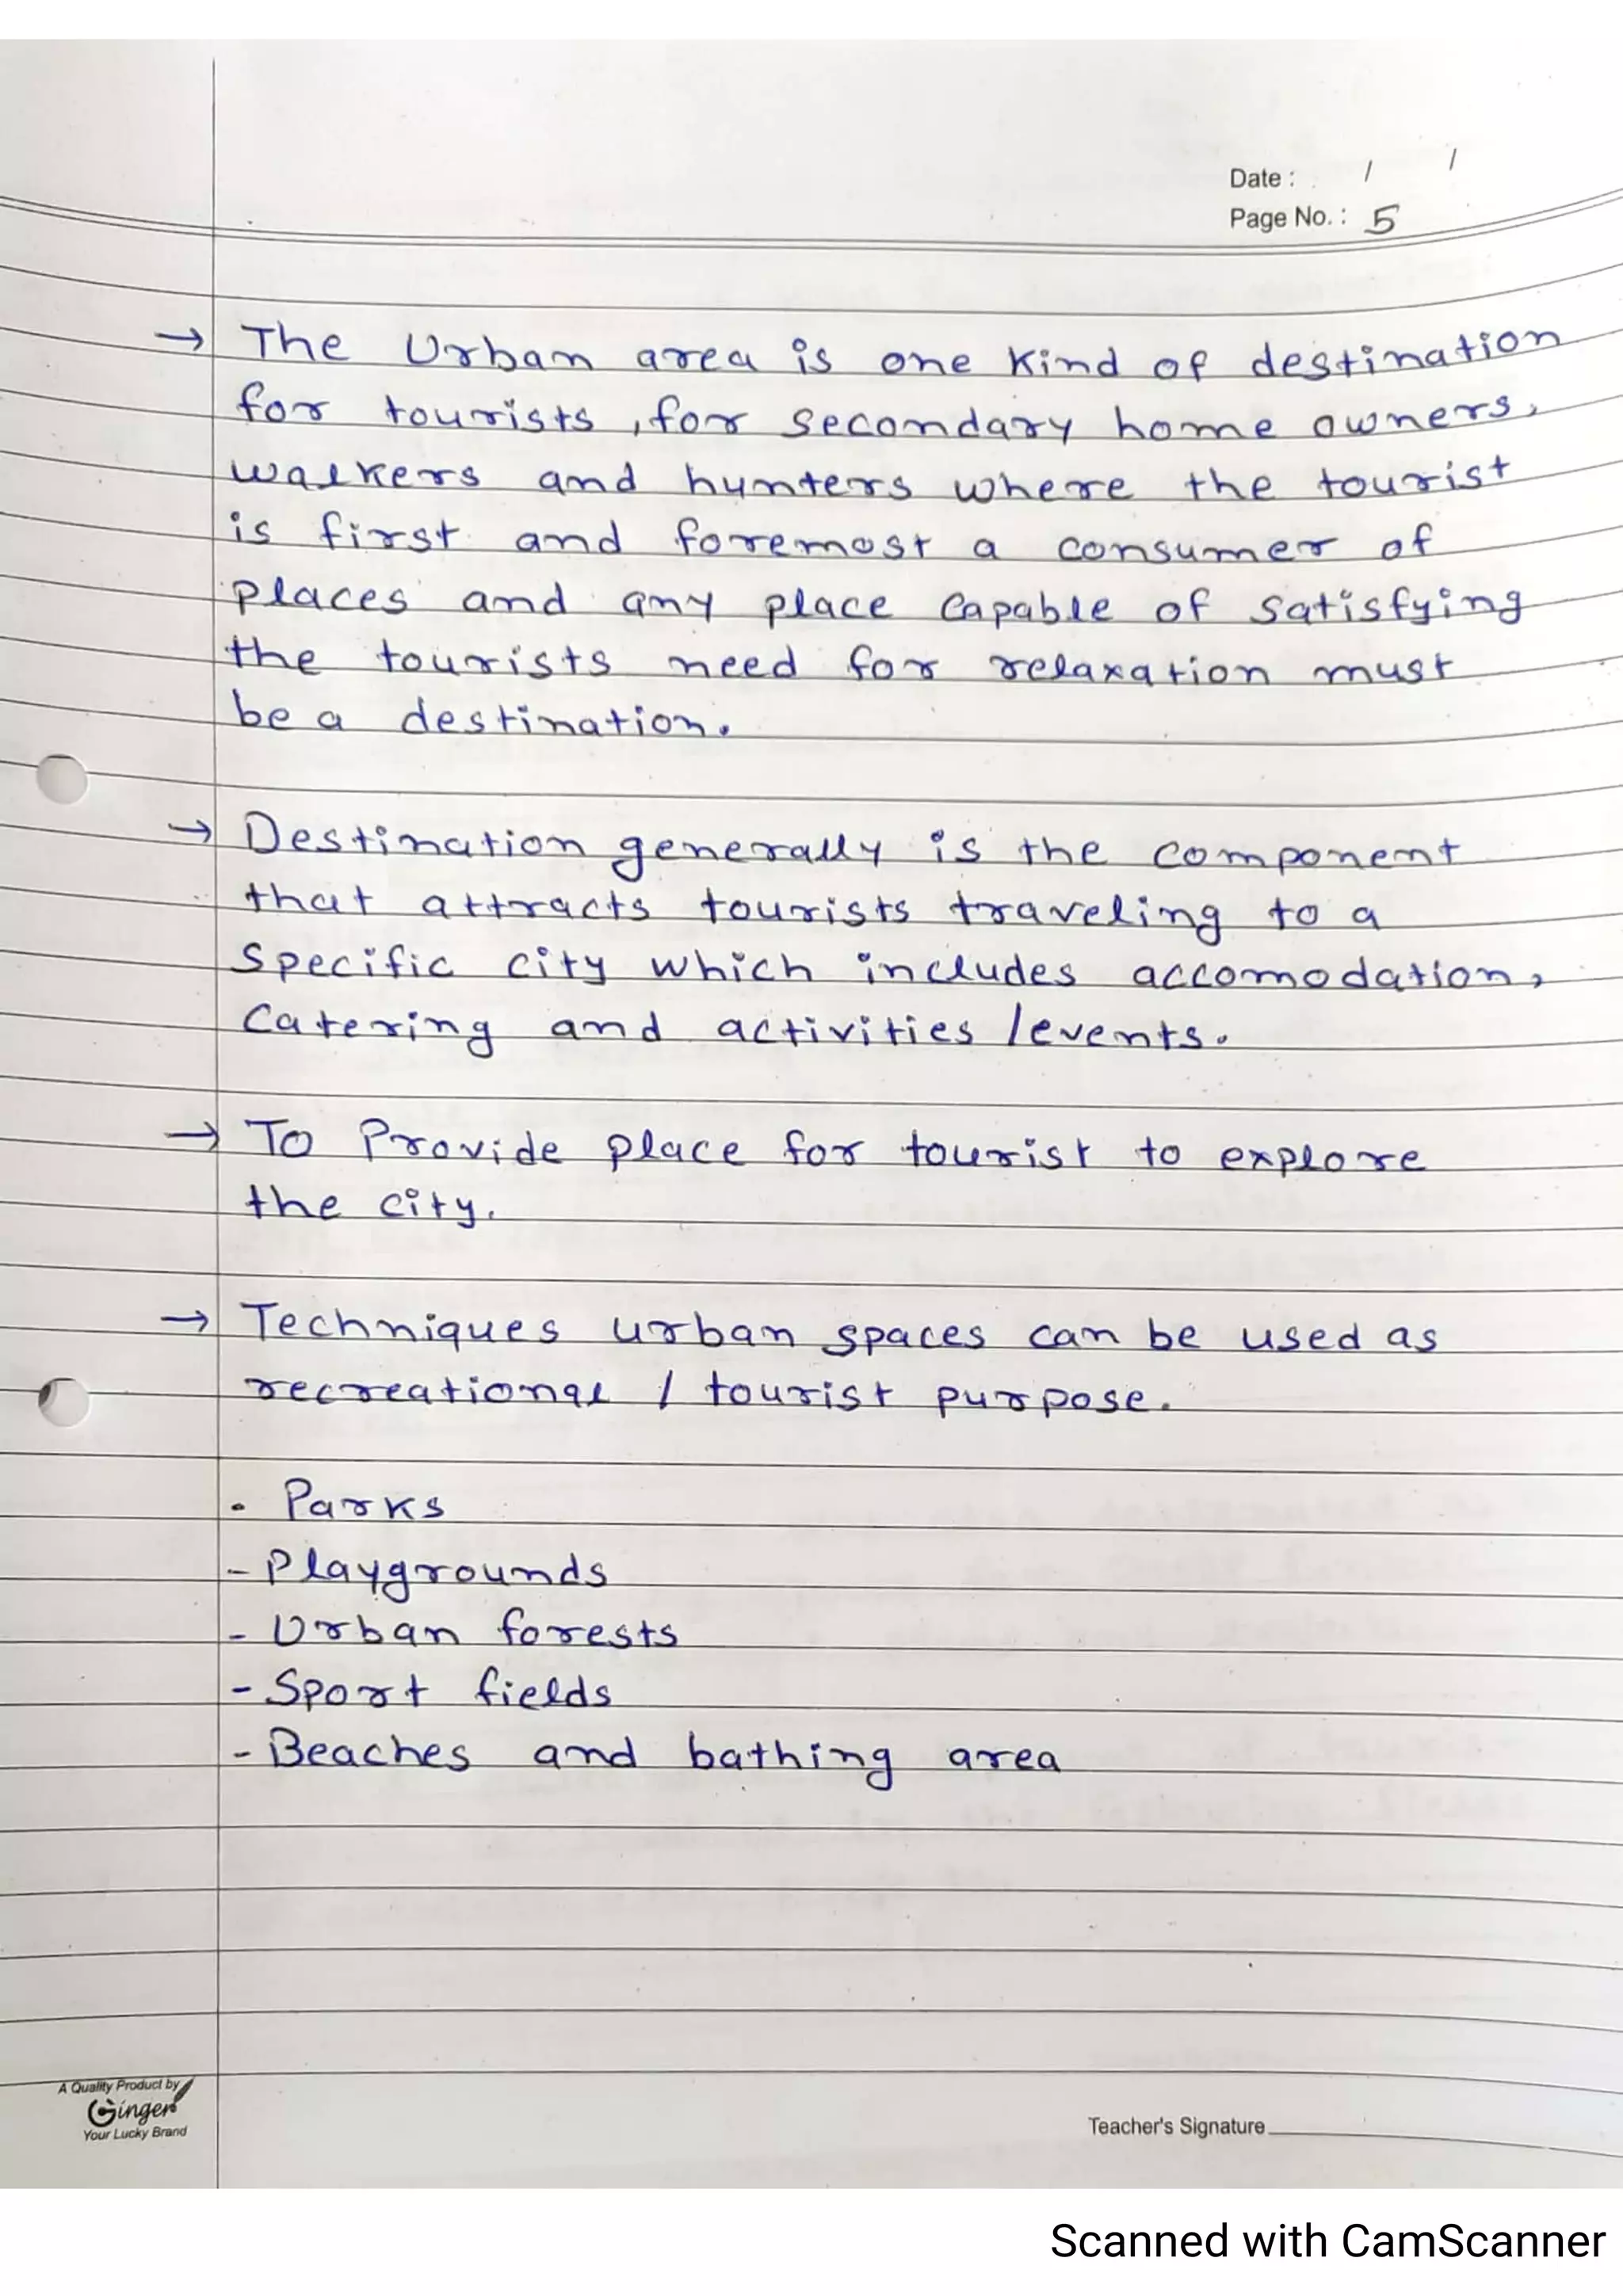 Date : / /
Page No. : 5
→ The Urban area is one kind of destination
for tourists, for secondary home owners,
walkers and hunters where the tourist
is first and foremost a consumer of
places and any place capable of satisfying
the tourists need for relaxation must
be a destination.
→ Destination generally is the component
that attracts tourists traveling to a
specific city which includes accomodation,
catering and activities /events.
→ To Provide place for tourist to explore
the city.
→ Techniques urban spaces can be used as
recreational / tourist purpose.
• Parks
- Playgrounds
- Urban forests
- Sport fields
- Beaches and bathing area
A Quality Product by
Ginger
Your Lucky Brand
Teacher's Signature
Scanned with CamScanner